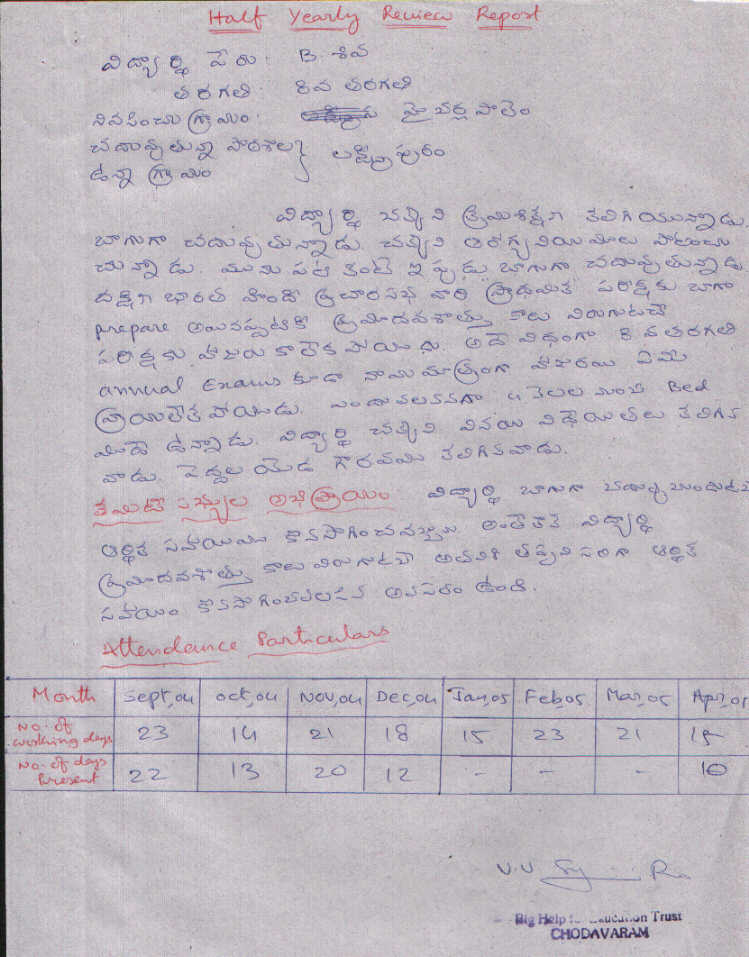 Half Yearly Review Report
విద్యార్థి పేరు: B. శివ
తరగతి: 8వ తరగతి
నివసించు గ్రామం: పాలెం
చదువుతున్న పాఠశాల } లక్ష్మీపురం
ఉన్న గ్రామం
విద్యార్థి చక్కని క్రమశిక్షణ కలిగియున్నాడు.
బాగుగా చదువుతున్నాడు. చక్కని ఆరోగ్యనియమాలు పాటించు
చున్నాడు. మునుపటి కంటే ఇప్పుడు బాగుగా చదువుతున్నాడు
దక్షిణ భారత హిందీ ప్రచారసభ వారి ప్రాథమిక పరీక్షకు బాగా
prepare అయినప్పటికీ ప్రమాదవశాత్తు కాలు విరుగుటచే
పరీక్షకు హాజరు కాలేక పోయెను. అదే విధంగా 8వ తరగతి
annual Exams కూడా నామమాత్రంగా హాజరయి ఏమీ
వ్రాయలేక పోయాడు. ఎందువలననగా 4 నెలల నుంచి Bed
మీదే ఉన్నాడు. విద్యార్థి చక్కని వినయ విధేయతలు కలిగిన
వాడు. పెద్దల యెడ గౌరవము కలిగినవాడు.
కమిటీ సభ్యుల అభిప్రాయం: విద్యార్థి బాగుగా చదువుచుండుటచే
ఆర్థిక సహాయము కొనసాగించవచ్చును. అంతేకాక విద్యార్థి
ప్రమాదవశాత్తు కాలు విరుగుటచే అతనికి తప్పనిసరిగా ఆర్థిక
సహాయం కొనసాగించవలసిన అవసరం ఉంది.
Attendance Particulars
Month Sept,04 Oct,04 Nov,04 Dec,04 Jan,05 Feb,05 Mar,05 Apr,05
No. of working days 23 14 21 18 15 23 21 15
No. of days Present 22 13 20 12 - - - 10
V.V
Big Help Education Trust
CHODAVARAM